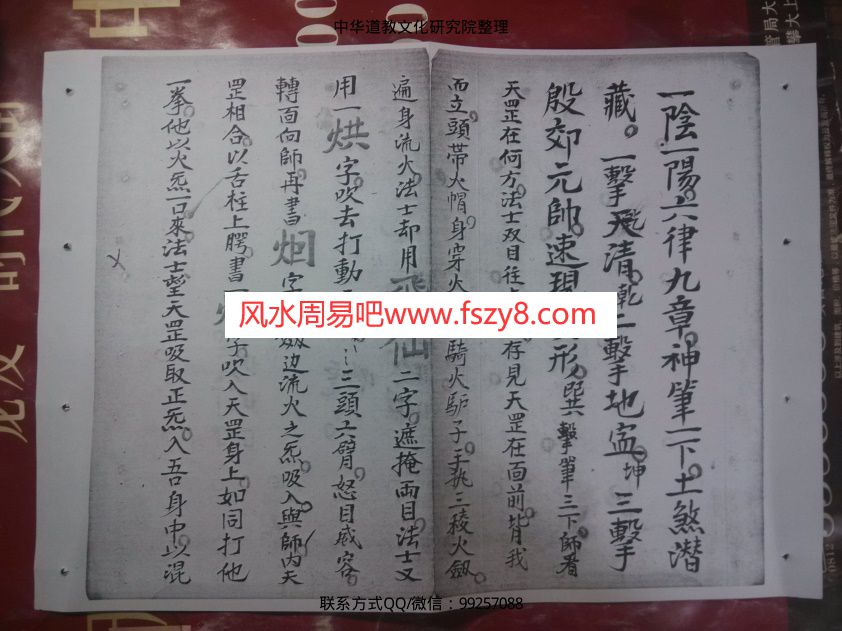 中华道教文化研究院整理
一陰一陽。六律九章。神筆一下。土煞潛
藏。一擊飛清。乾二擊地宓。坤三擊
殷郊元帥。速現形。巽擊筆三下師看
天罡在何方。法士双目往存見天罡在面前。皆我
而立。頭帶火帽身穿火騎火驴子。手执三稜火劔。
遍身流火。法士却用飛仙二字。遮掩両目。法士又
用一烘字。吹去打動三頭六臂。怒目威容
轉面向師。再書烟字劔边流火之炁。吸入與師内天
罡相合。以舌柱上腭。書一字吹入天罡身上。如同打他
一拳。他以火炁一口來。法士望天罡吸取正炁。入吾身中。以混
风水周易吧www.fszy8.com
联系方式QQ/微信：99257088
管局大
攀大上
0812